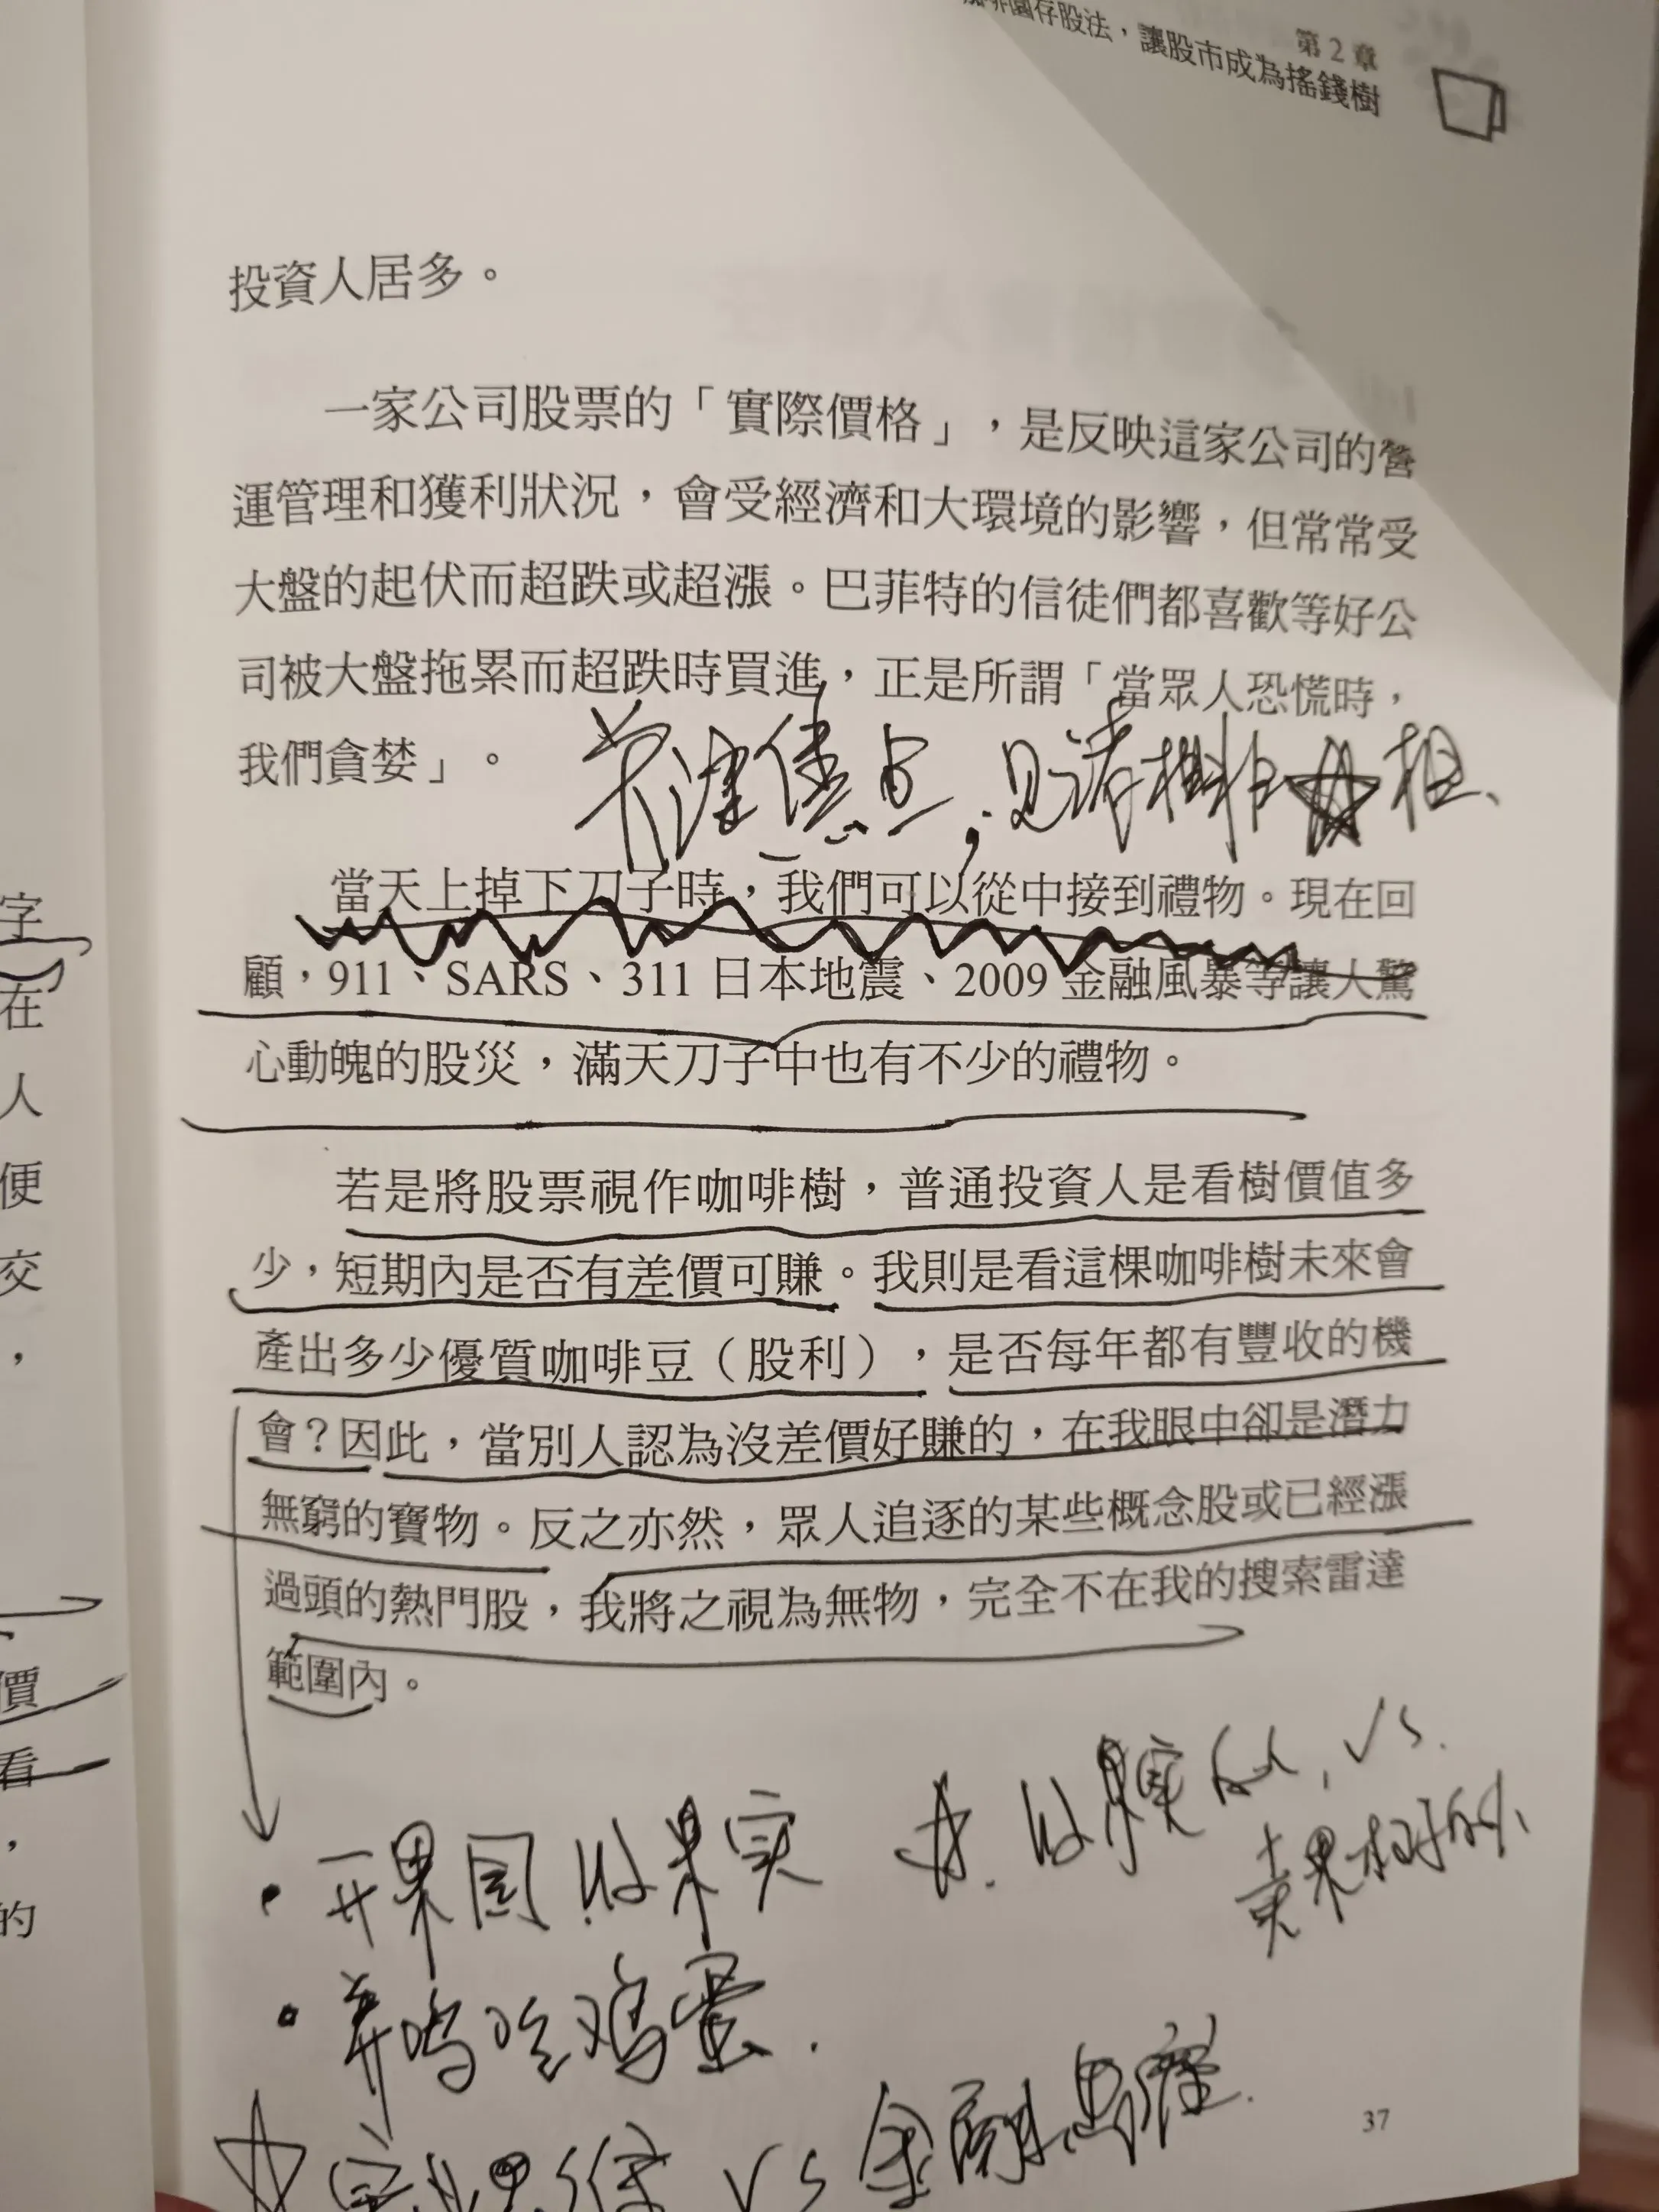 第2章
咖啡園存股法，讓股市成為搖錢樹
投資人居多。
一家公司股票的「實際價格」，是反映這家公司的營
運管理和獲利狀況，會受經濟和大環境的影響，但常常受
大盤的起伏而超跌或超漲。巴菲特的信徒們都喜歡等好公
司被大盤拖累而超跌時買進，正是所謂「當眾人恐慌時，
我們貪婪」。
當天上掉下刀子時，我們可以從中接到禮物。現在回
顧，911、SARS、311 日本地震、2009 金融風暴等讓人驚
心動魄的股災，滿天刀子中也有不少的禮物。
若是將股票視作咖啡樹，普通投資人是看樹價值多
少，短期內是否有差價可賺。我則是看這棵咖啡樹未來會
產出多少優質咖啡豆（股利），是否每年都有豐收的機
會？因此，當別人認為沒差價好賺的，在我眼中卻是潛力
無窮的寶物。反之亦然，眾人追逐的某些概念股或已經漲
過頭的熱門股，我將之視為無物，完全不在我的搜索雷達
範圍內。
·开果园收果实
收果实的人，vs.
卖果树的人
·养鸡吃鸡蛋.
vs 金融思维.
37
字
在
人
便
交
，
價
看
，
的